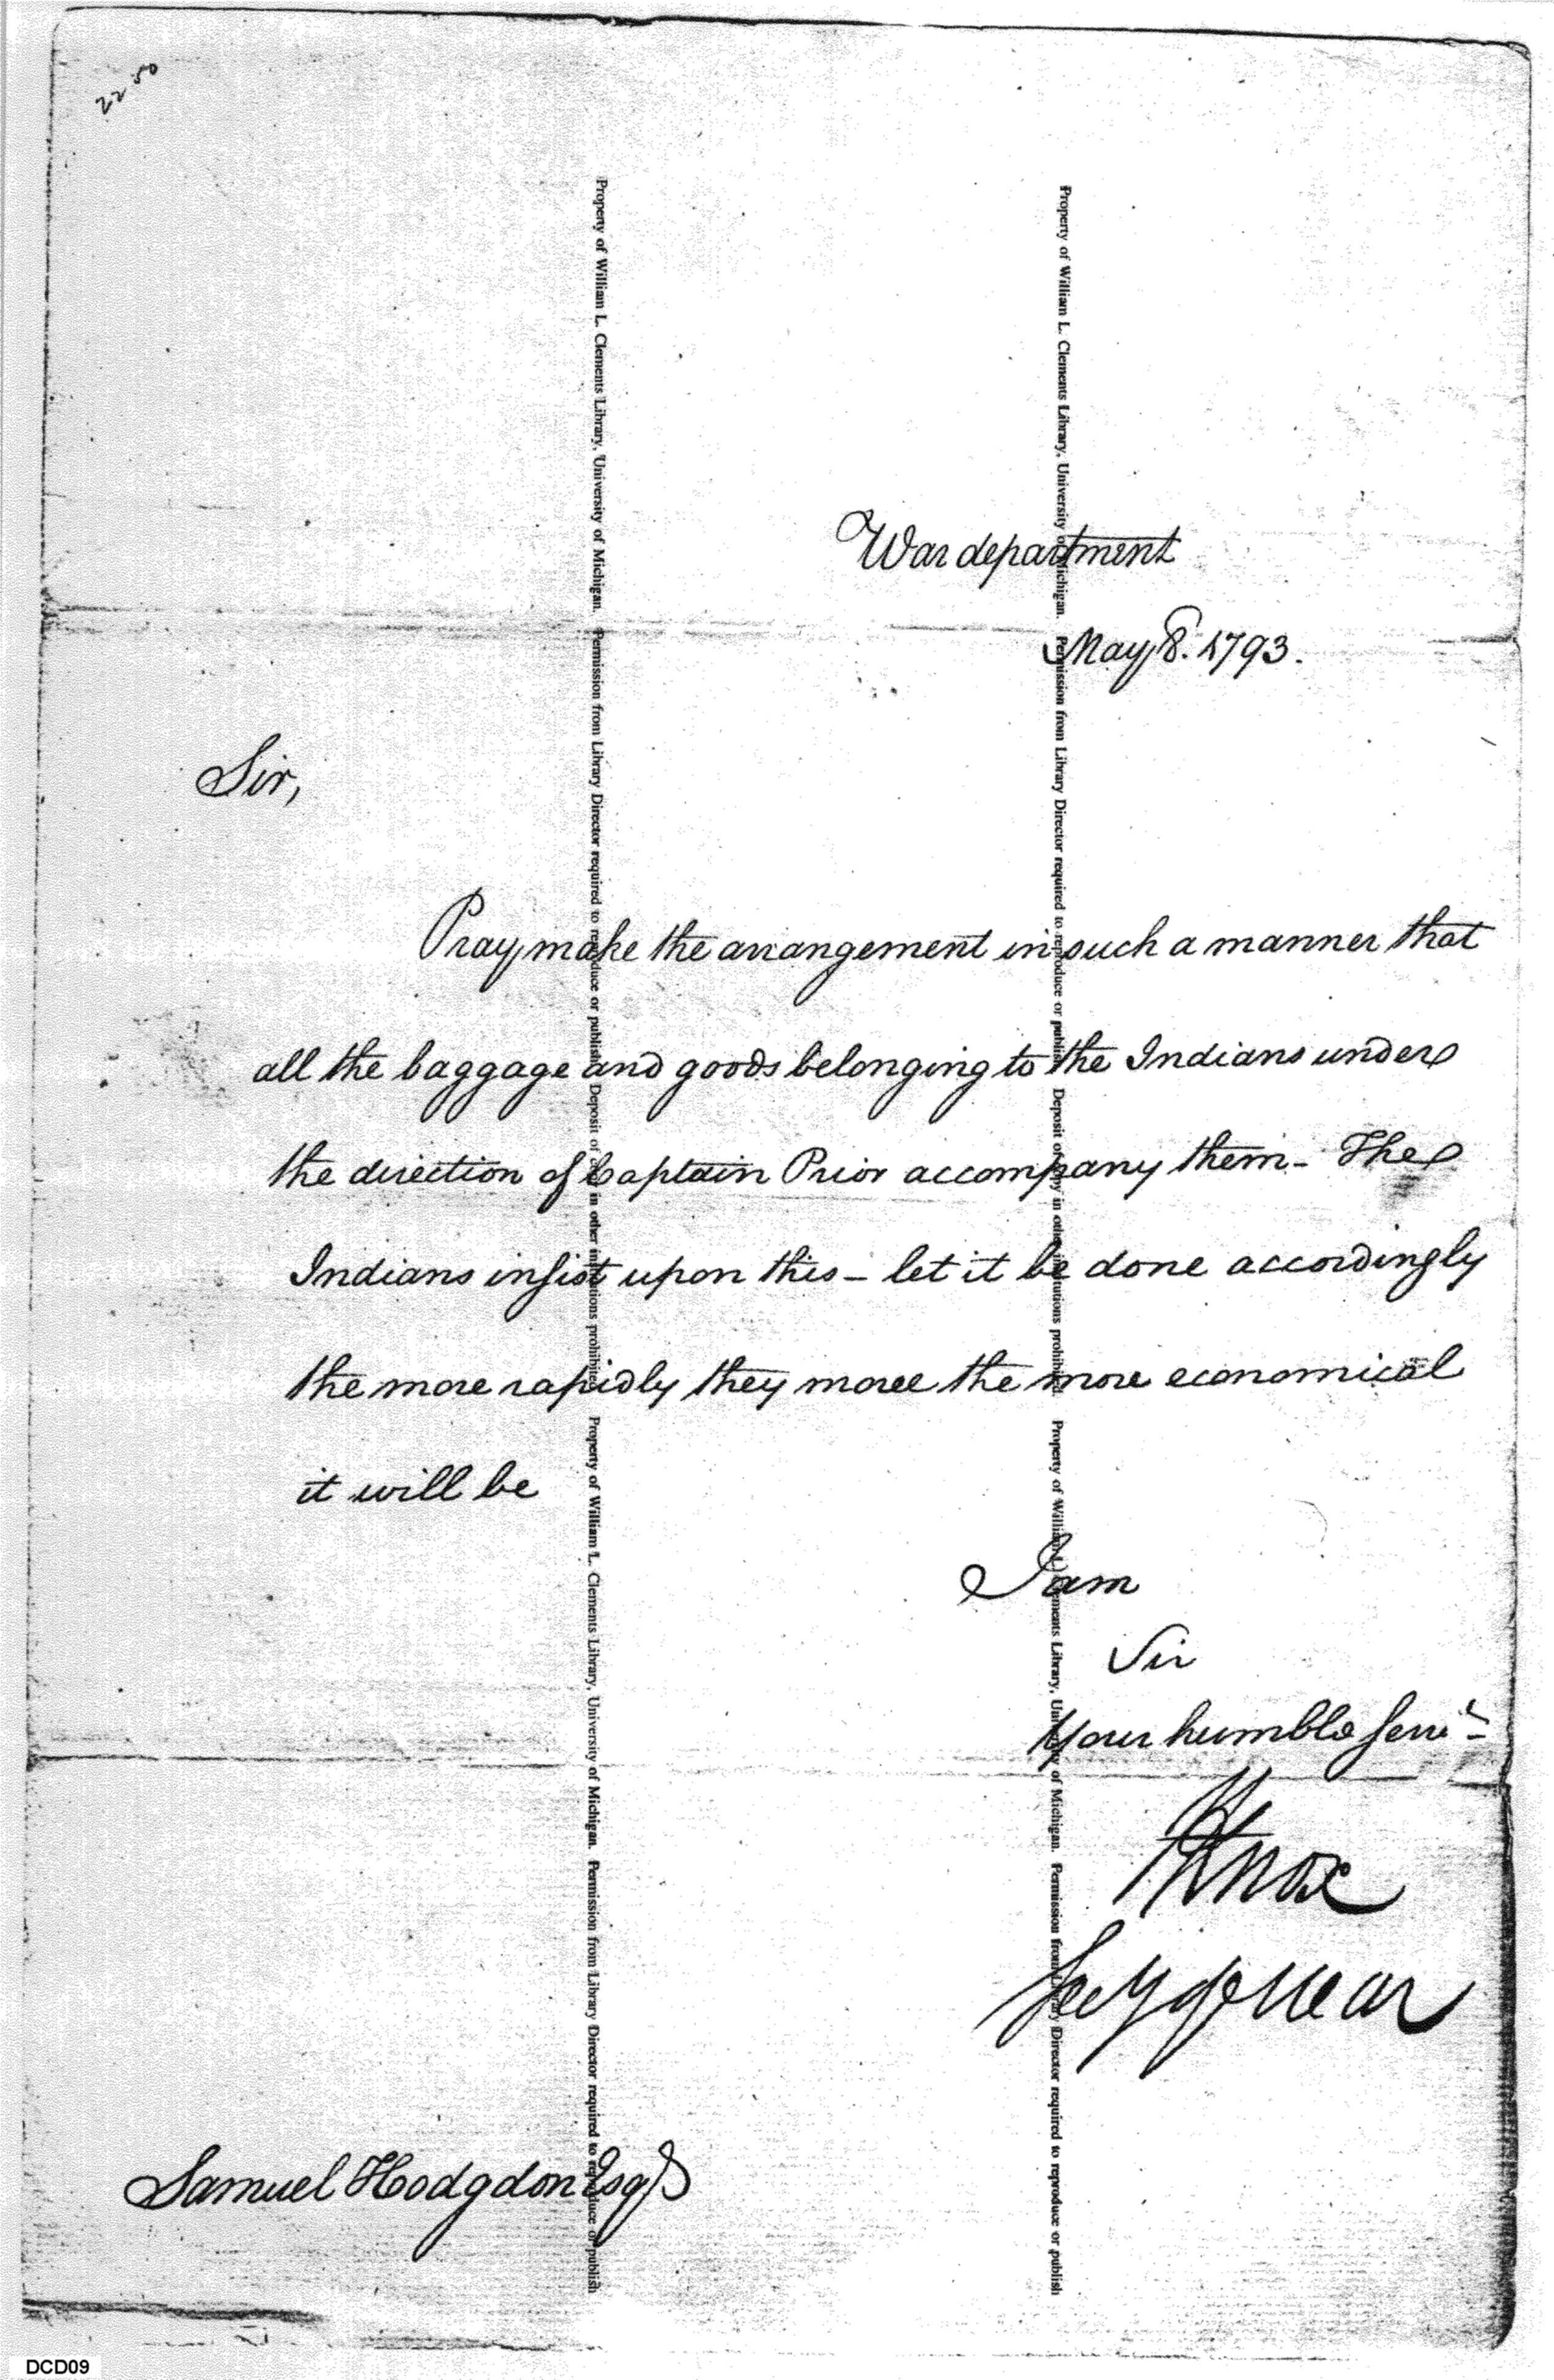 22 50
War department
May 8. 1793.
Sir,
Pray make the arrangement in such a manner that
all the baggage and goods belonging to the Indians under
the direction of Captain Prior accompany them - The
Indians insist upon this - let it be done accordingly
the more rapidly they move the more economical
it will be
I am
Sir
Your humble Servt
HKnox
Secy of War
Samuel Hodgdon Esqr
Property of William L. Clements Library, University of Michigan. Permission from Library Director required to reproduce or publish. Deposit of copy in other institutions prohibited.
Property of William L. Clements Library, University of Michigan. Permission from Library Director required to reproduce or publish
Property of William L. Clements Library, University of Michigan. Permission from Library Director required to reproduce or publish. Deposit of copy in other institutions prohibited.
Property of William L. Clements Library, University of Michigan. Permission from Library Director required to reproduce or publish
DCD09